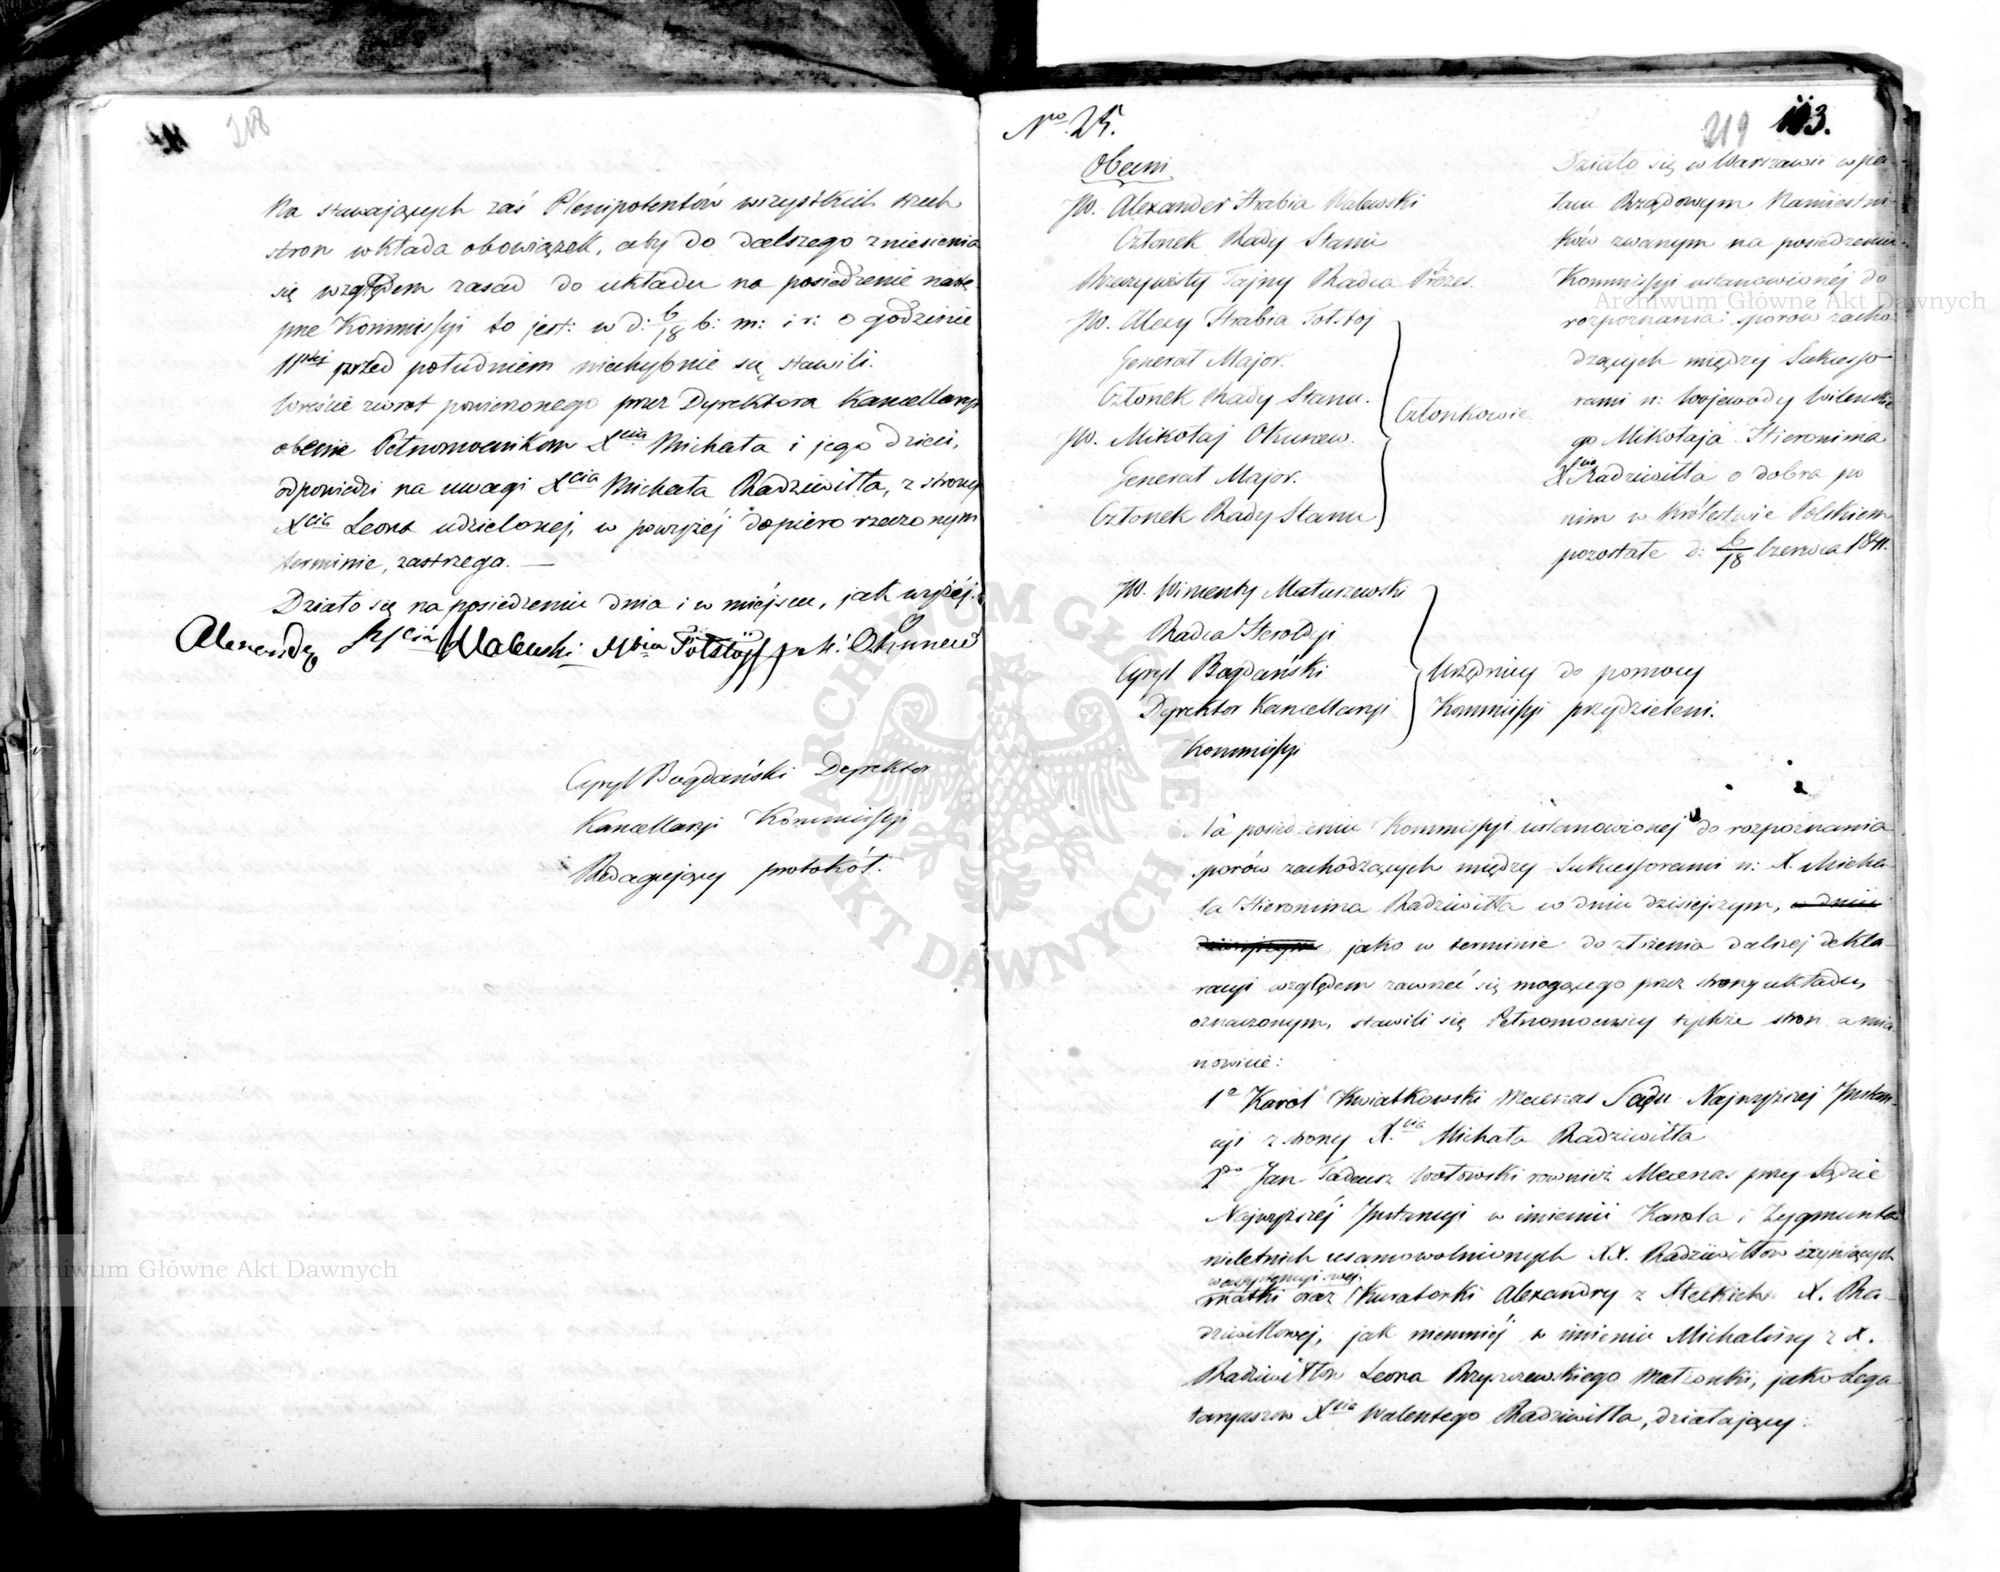 218
Na stawających zaś Plenipotentów wszystkich trzech
stron wkłada obowiązek, aby do dalszego zniesienia
się względem zasad do układu na posiedzenie nastę
pne Kommissyi to jest: w d: 6/18 b: m: i r: o godzinie
11stej przed południem niechybnie się stawili.
Wreście zwrot powierzonego przez Dyrektora Kancellaryi
obecnie Pełnomocnikom Xcia Michała i jego dzieci,
odpowiedzi na uwagi Xcia Michała Radziwiłła, z strony
Xcia Leona udzielonej, w powyżéj dopiero rzeczonym
terminie, zastrzega. —
Działo się na posiedzeniu dnia i w miejscu, jak wyżéj.
Alexander Hrabia Walewski Hbia Tołstoy M: Okunew
Cyryl Bogdański Dyrektor
Kancellaryi Kommissyi
Redagujący protokół.
No. 25.
219 113.
Obecni
JW. Alexander Hrabia Walewski
Członek Rady Stanu
Rzeczywisty Tajny Radca Prezes.
JW. Alexy Hrabia Tołstoj
Generał Major.
Członek Rady Stanu.
JW. Mikołaj Okunew.
Generał Major.
Członek Rady Stanu
Członkowie
JW. Wincenty Matuszewski
Radca Heroldyi
Cyryl Bogdański
Dyrektor Kancellaryi
Kommissyi
Urzędnicy do pomocy
Kommissyi przydzieleni.
Działo się w Warszawie w pa-
łacu Rządowym Namiestni-
ków zwanym na posiedzeniu
Kommissyi ustanowionéj do
rozpoznania sporów zacho-
dzących między Sukcesso
rami n: Wojewody Wileńskie
go Mikołaja Hieronima
Xcia Radziwiłła o dobra po
nim w Królestwie Polskiem
pozostałe d: 6/18 Czerwca 1841.
Na posiedzeniu Kommissyi ustanowionej do rozpoznania
sporów zachodzących między Sukcessorami n: X. Micha
ła Hieronima Radziwiłła w dniu dzisiejszym, w dniu
dzisiejszym, jako w terminie do złożenia dalszej dekla
racyi względem zawrzeć się mogącego przez strony układu,
oznaczonym, stawili się Pełnomocnicy tychże stron a mia
nowicie:
1o Karol Kwiatkowski Mecenas Sądu Najwyższej Instan-
cyi z strony X.cia Michała Radziwiłła
2do Jan Tadeusz Wołowski również Mecenas przy Sądzie
Najwyższéj Instancyi w imieniu Karola i Zygmunta
nieletnich usamowolnionych XX. Radziwiłłów czyniących
w assystencyi swej
matki oraz Kuratorki Alexandry z Steckich X. Ra-
dziwiłłowej, jak niemniéj w imieniu Michaliny z X.
Radziwiłłów Leona Rzyszczewskiego Małżonki, jako Lega
taryuszów Xcia Walentego Radziwiłła, działający:
Archiwum Główne Akt Dawnych
Archiwum Główne Akt Dawnych
ARCHIWUM GŁÓWNE AKT DAWNYCH